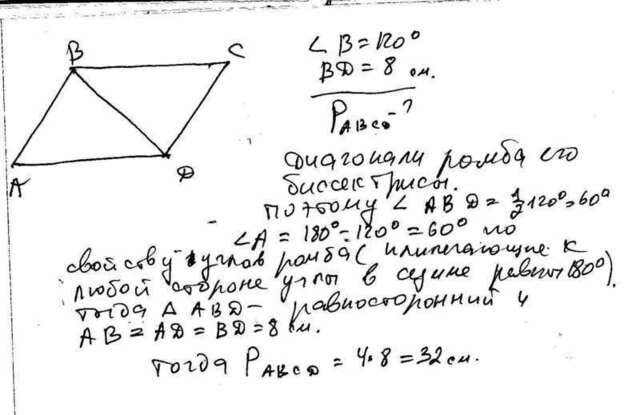 B
C
A
D
∠B=120°
BD=8 см.
P ABCD -?
Диагонали ромба его
биссектрисы.
Поэтому ∠ABD=1/2 120°=60°
∠A=180°-120°=60° по
свойству углов ромба (прилегающие к
любой стороне углы в сумме равны 180°).
Тогда △ABD- равносторонний и
AB=AD=BD=8 см.
Тогда P ABCD =4·8=32 см.